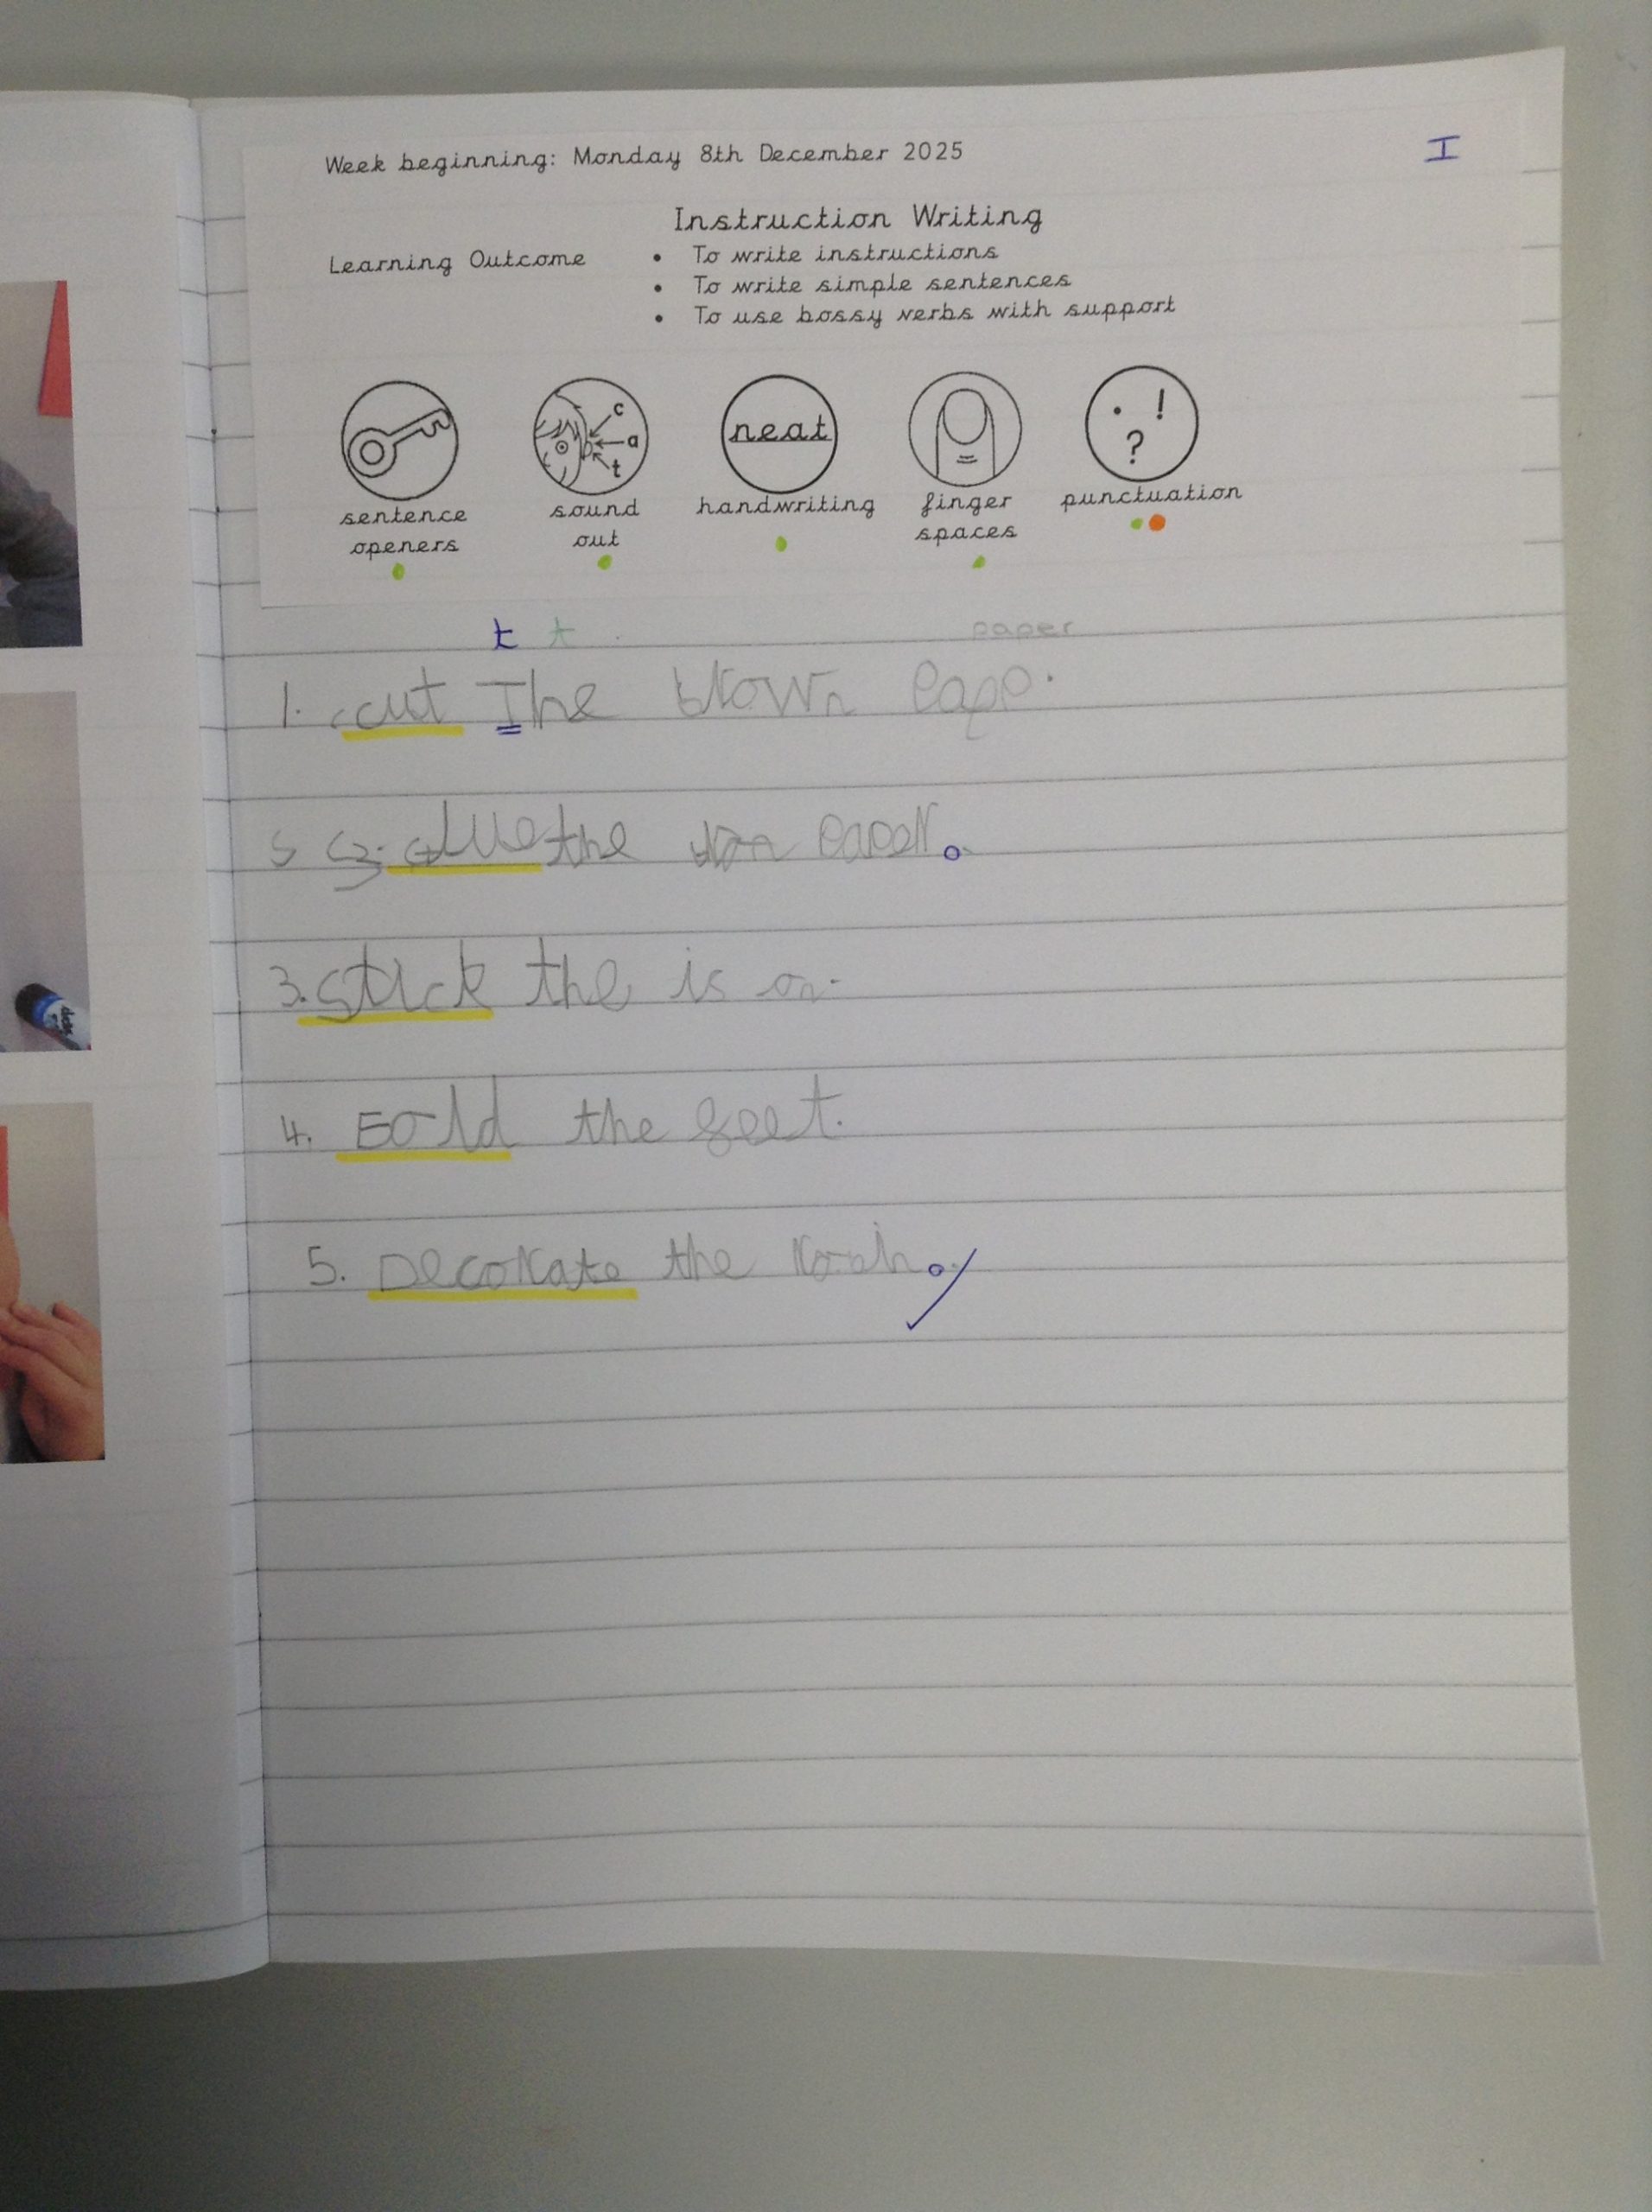 Week beginning: Monday 8th December 2025
I
Instruction Writing
Learning Outcome
• To write instructions
• To write simple sentences
• To use bossy verbs with support
c
a
t
neat
. !
?
sentence openers
sound out
handwriting
finger spaces
punctuation
t t
paper
1. cut The brown pape.
glue the paper.
3. stick the is on.
4. Fold the feet.
5. Decorate the